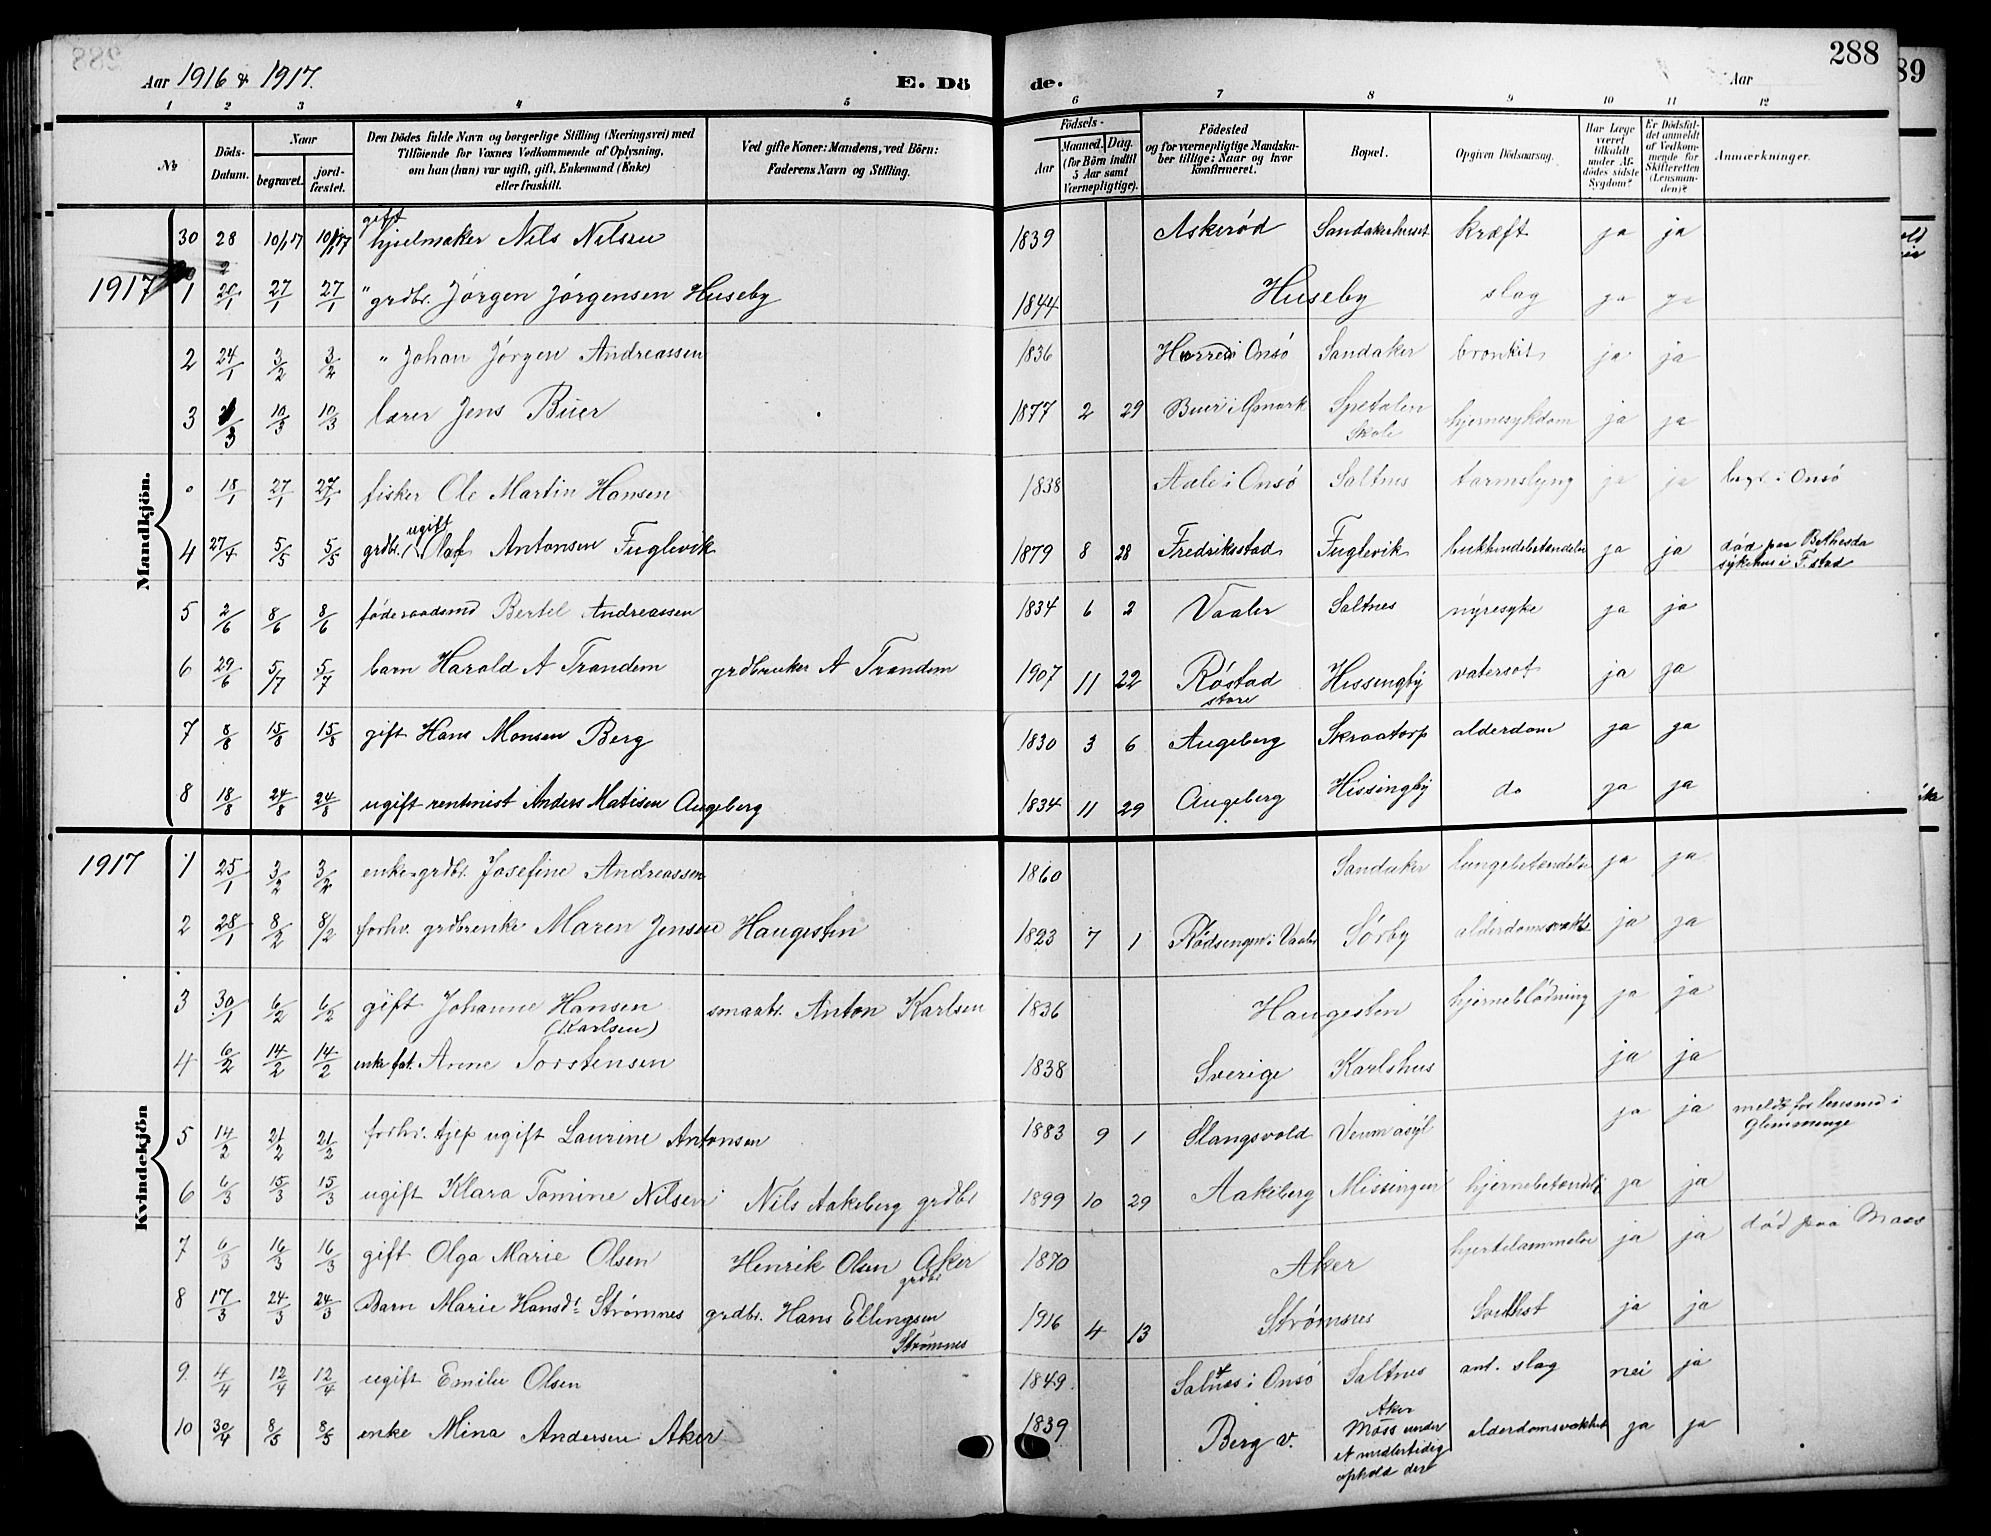 Aar 1916 & 1917.
E. Dö
de.
Aar
288
1 2 3 4 5 6 7 8 9 10 11 12
№
Döds-Datum.
Naar
begravet.
jord-fæstet.
Den Dödes fulde Navn og borgerlige Stilling (Næringsvei) med
Tilföiende for Voxnes Vedkommende af Oplysning,
om han (hun) var ugift, gift, Enkemand (Enke)
eller fraskilt.
Ved gifte Koner: Mandens, ved Börn:
Faderens Navn og Stilling.
Födsels-
Aar
Maaned. Dag.
(for Börn indtil
5 Aar samt
Værnepligtige).
Födested
og for værnepligtige Mandska-
ber tillige: Naar og hvor
konfirmeret.
Bopæl.
Opgiven Dödsaarsag.
Har Læge
været
tilkaldt
under Af-
dödes sidste
Sygdom?
Er Dödsfal-
det anmeldt
af Vedkom-
mende for
Skifteretten
(Lensman-
den)?
Anmærkninger.
Mandkjön.
30 28 10/1 17 10/1 17 gift hjulmaker Nils Nilsen 1839 Askeröd Sandakerhuset kræft ja ja
1917 1 20/1 27/1 27/1 " grdbr. Jörgen Jörgensen Huseby 1844 Huseby slag ja ja
2 24/1 3/2 3/2 " Johan Jörgen Andreassen 1836 Horred i Onsö Sandaker bronkit ja ja
3 1/3 10/3 10/3 lærer Jens Buer 1877 2 29 Buer i Römark Spetalen Skole hjernesykdom ja ja
0 18/1 27/1 27/1 fisker Ole Martin Hansen 1838 Aale i Onsö Saltnes tarmslyng ja ja begr. i Onsö
4 27/4 5/5 5/5 grdbr. ugift Olaf Antonsen Fuglevik 1879 8 28 Fredriksstad Fuglevik bukhindebetændelse ja ja död paa Bethesda sykehus i F.stad
5 2/6 8/6 8/6 föderaadsmd Bertel Andreassen 1834 6 2 Vaaler Saltnes nyresyke ja ja
6 29/6 5/7 5/7 barn Harald A Trandem grdbruker A Trandem 1907 11 22 Röstad store Hissingby vatersot ja ja
7 8/8 15/8 15/8 gift Hans Monsen Berg 1830 3 6 Augeberg Skraatorp alderdom ja ja
8 18/8 24/8 24/8 ugift rentenist Anders Matisen Augeberg 1834 11 29 Augeberg Hissingby do ja ja
Kvindekjön
1917 1 25/1 3/2 3/2 enke grdbr. Josefine Andreassen 1860 Sandaker lungebetændelse ja ja
2 28/1 8/2 8/2 forhv. grdbrenke Maren Jensen Haugesten 1823 7 1 Rödsengen i Vaaler Sörby alderdomssvakh. ja ja
3 30/1 6/2 6/2 gift Johanne Hansen (Karlsen) smaabr. Anton Karlsen 1836 Haugesten hjerneblödning ja ja
4 6/2 14/2 14/2 enke fat. Anne Torstensen 1838 Sverige Karlshus ja ja
5 14/2 21/2 21/2 forhv. tjep ugift Laurine Antonsen 1883 9 1 Slangsvold Veum asyl ja ja meldt for lensmd i Glemmenge
6 6/3 15/3 15/3 ugift Klara Tomine Nilsen Nils Aakeberg grdbr 1899 10 29 Aakeberg Missingen hjernebetændelse ja ja
7 6/3 16/3 16/3 gift Olga Marie Olsen Henrik Olsen Aker grdbr 1870 Aker hjertelammelse ja ja död paa Moss
8 17/3 24/3 24/3 Barn Marie Hansdt Strömnes grdbr. Hans Ellingsen Strömnes 1916 4 13 Strömsnes ja ja
9. 4/4 12/4 12/4 ugift Emilie Olsen 1849 Saltnes i Onsö Saltnes ant. slag nei ja
10 30/4 8/5 8/5 enke Mina Andersen Aker 1839 Berg v. Aker Moss under et midlertidig ophold der alderdomsvakhet ja ja